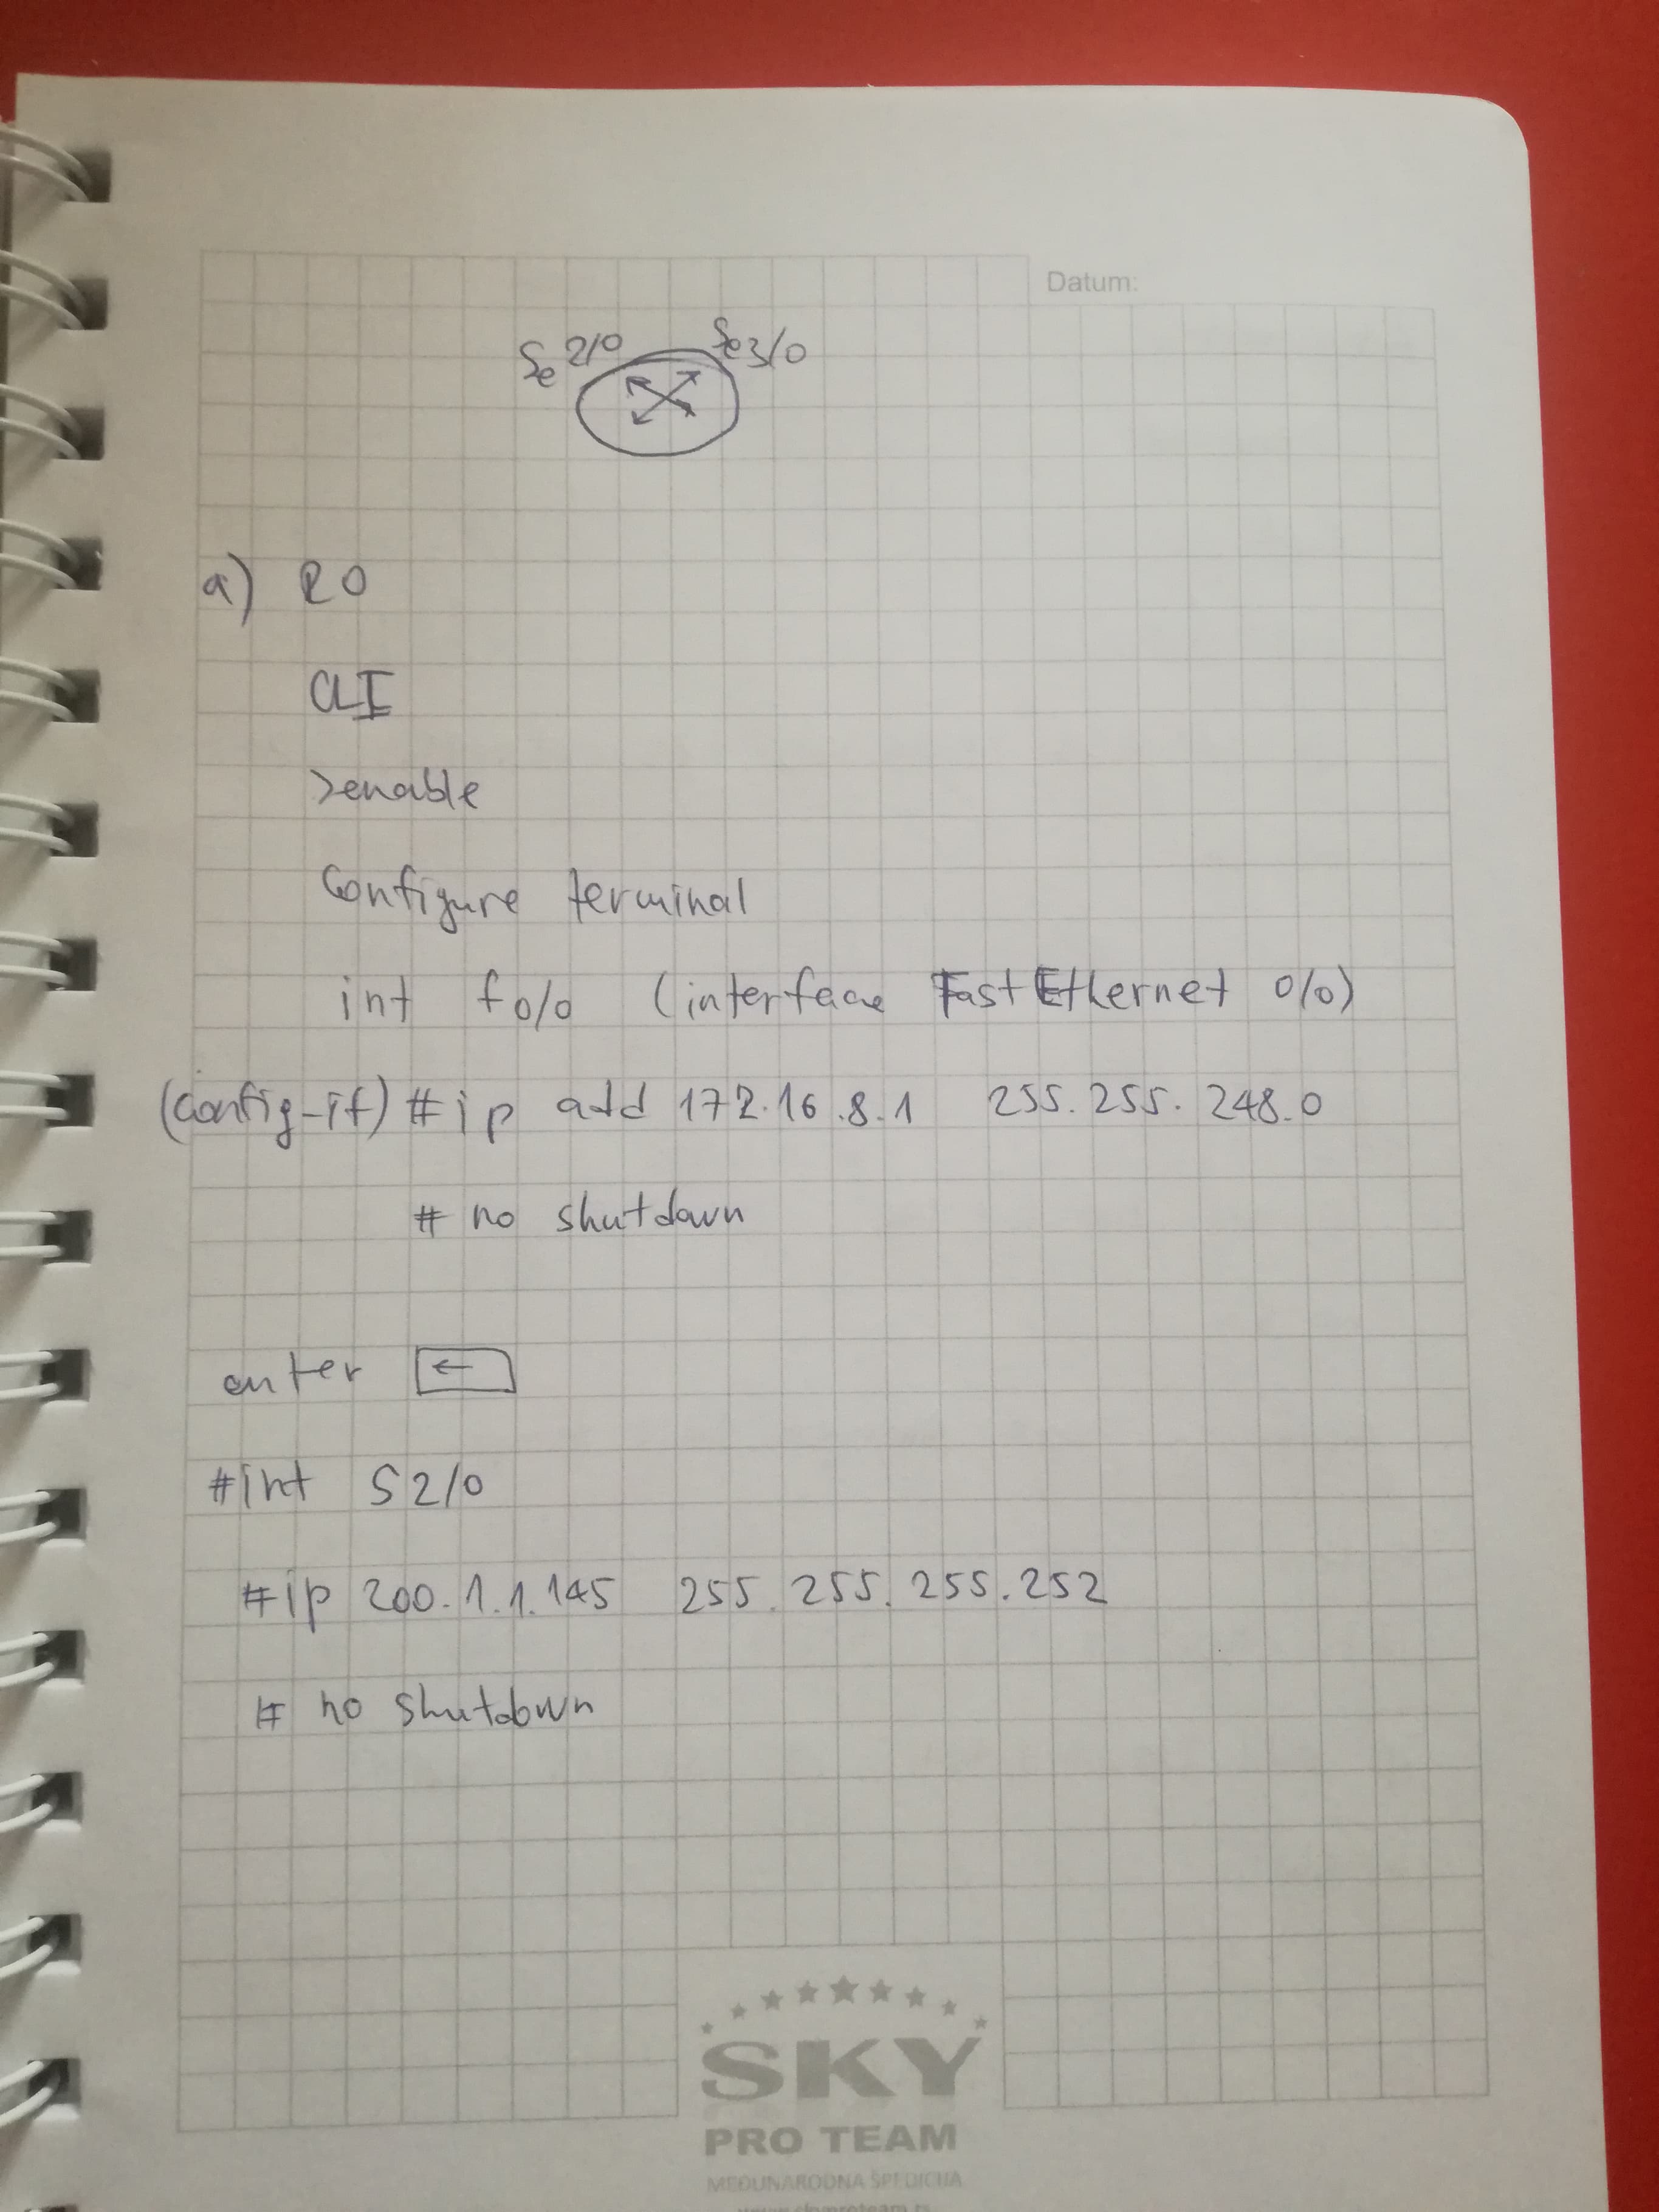 Datum:
Se 2/0 Se 3/0
a) R0
CLI
>enable
Configure terminal
int f0/0 (interface FastEthernet 0/0)
(config-if) #ip add 172.16.8.1 255.255.248.0
# no shutdown
enter ←
#int S2/0
#ip 200.1.1.145 255.255.255.252
# no shutdown
SKY
PRO TEAM
MEĐUNARODNA ŠPEDICIJA